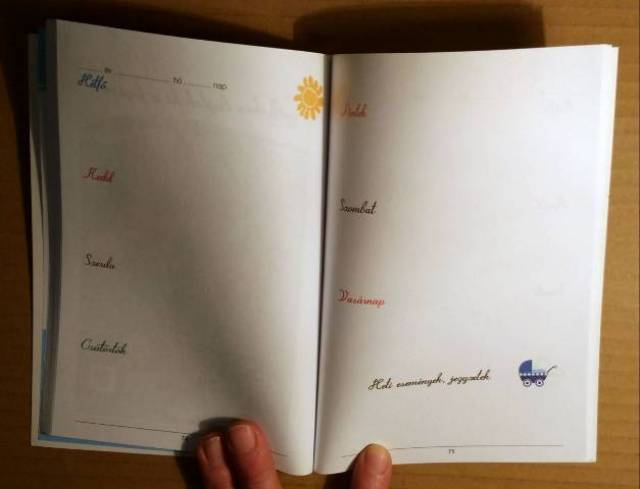 év hó nap
Hétfő
Kedd
Szerda
Csütörtök
Péntek
Szombat
Vasárnap
Heti események, jegyzetek
75